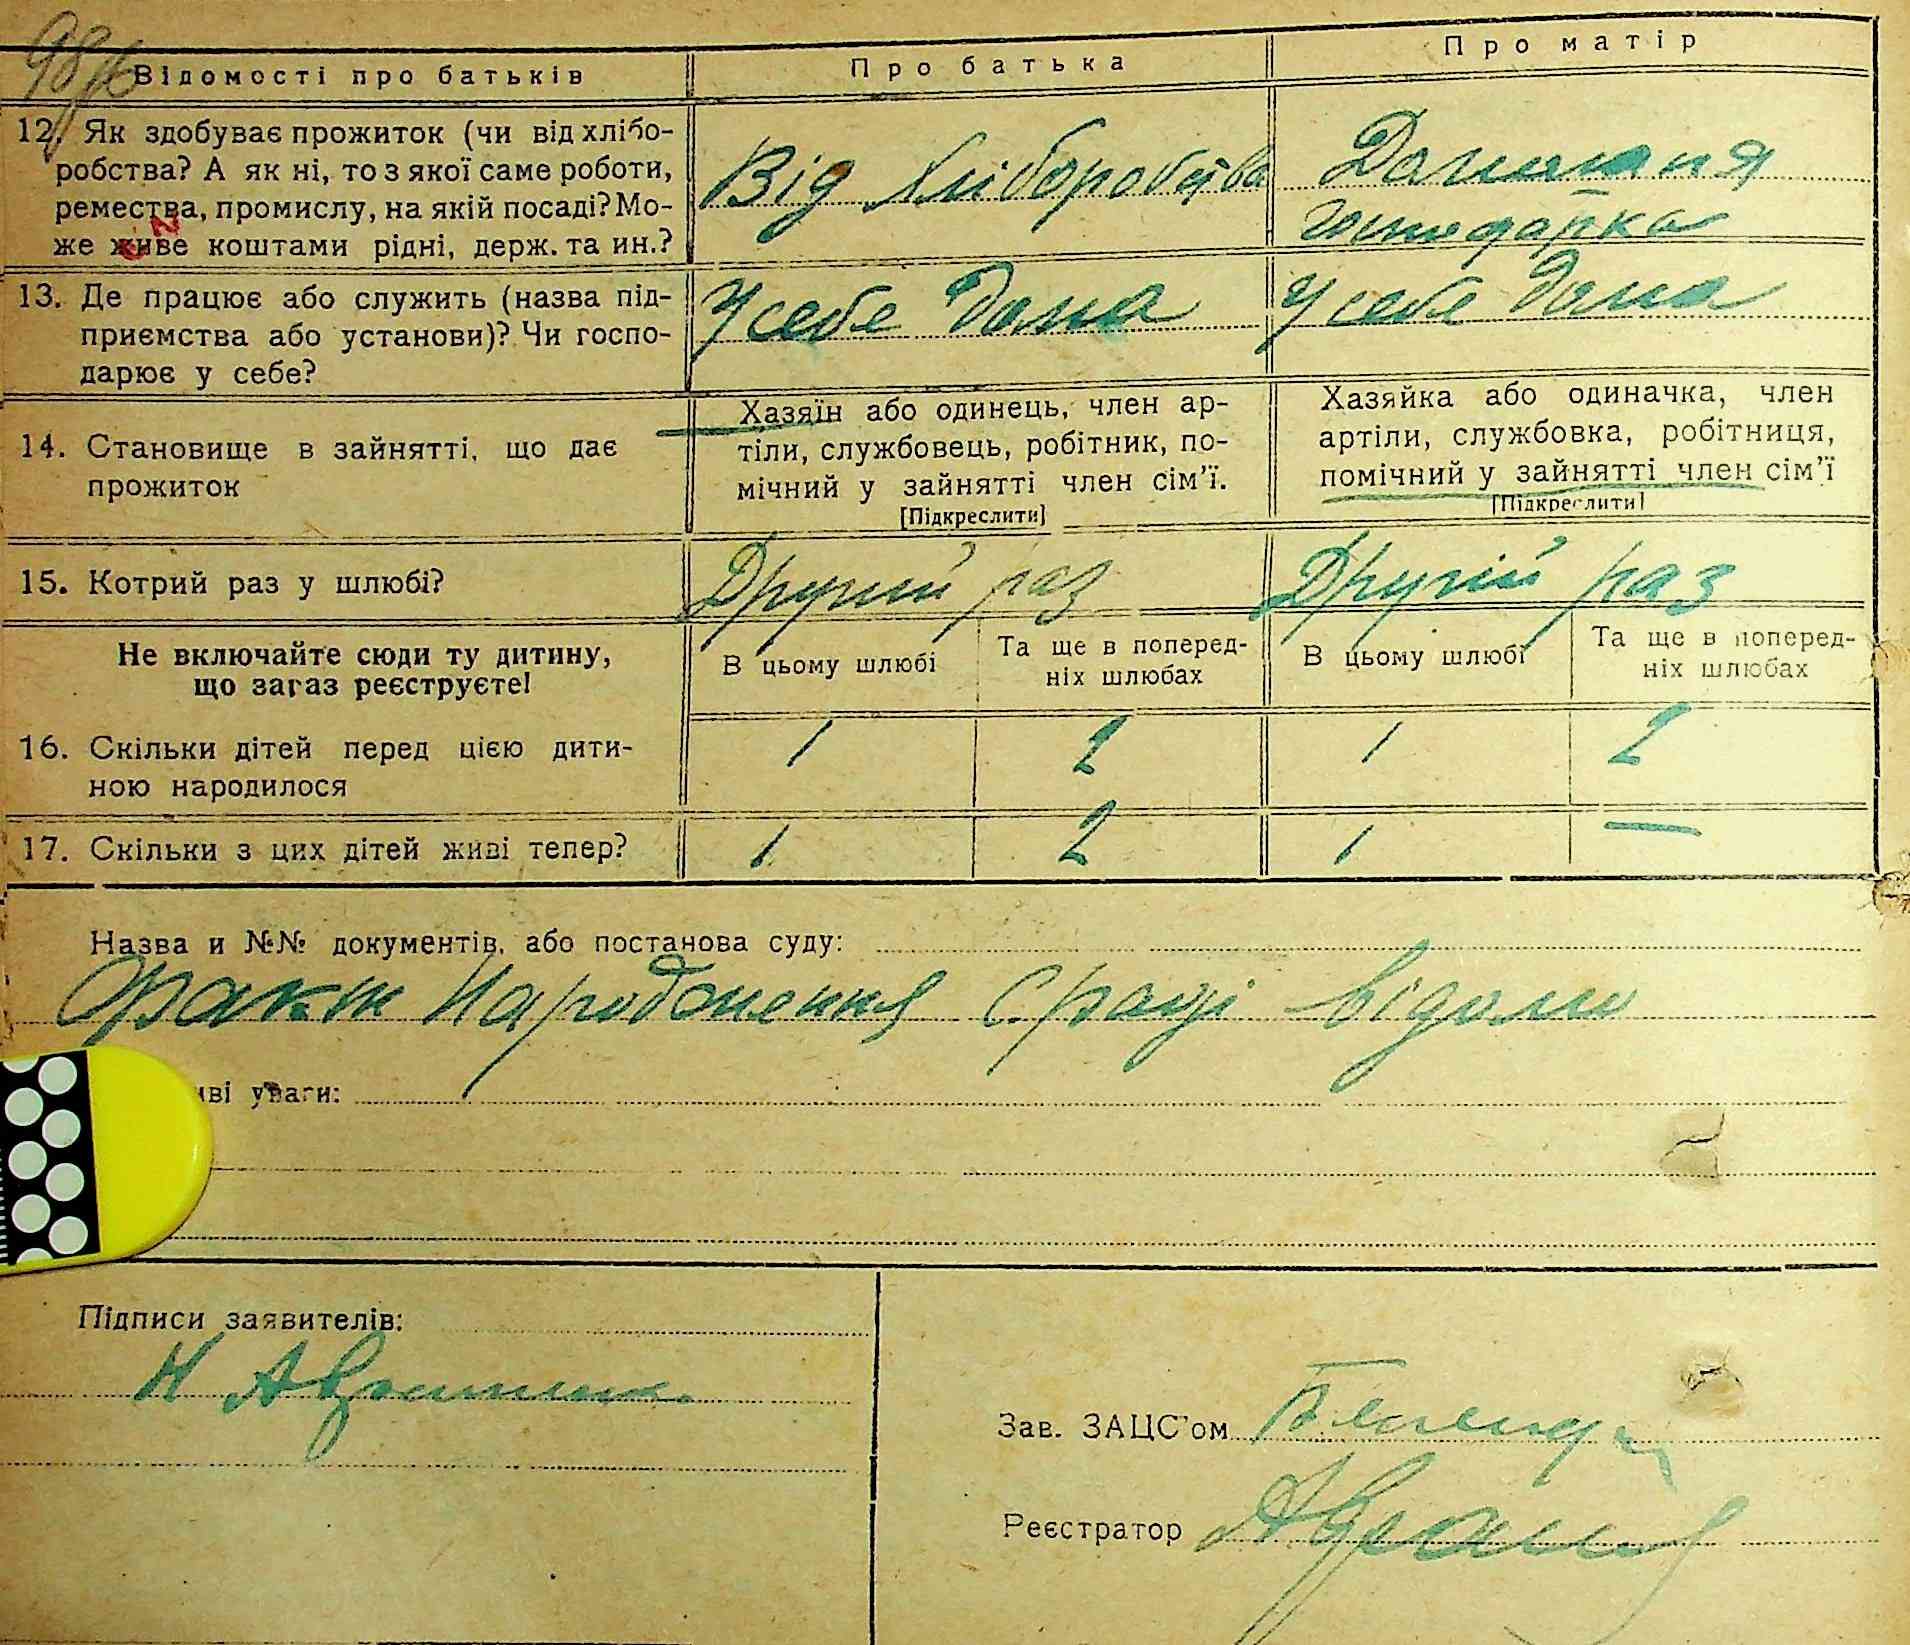 98
Відомості про батьків
Про батька
Про матір
12. Як здобуває прожиток (чи від хлібо-
робства? А як ні, то з якої саме роботи,
ремества, промислу, на якій посаді? Мо-
же живе коштами рідні, держ. та ин.?
Від Хліборобства
Домашня
господарка
13. Де працює або служить (назва під-
приємства або установи)? Чи госпо-
дарює у себе?
У себе дома
У себе дома
14. Становище в зайнятті, що дає
прожиток
Хазяїн або одинець, член ар-
тіли, службовець, робітник, по-
мічний у зайнятті член сім'ї.
[Підкреслити]
Хазяйка або одиначка, член
артіли, службовка, робітниця,
помічний у зайнятті член сім'ї
[Підкреслити]
15. Котрий раз у шлюбі?
Другий раз
Другий раз
Не включайте сюди ту дитину,
що загаз реєструєте!
В цьому шлюбі
Та ще в поперед-
ніх шлюбах
В цьому шлюбі
Та ще в поперед-
ніх шлюбах
16. Скільки дітей перед цією дити-
ною народилося
1 2 1 2
17. Скільки з цих дітей живі тепер?
1 2 1 —
Назва и №№ документів, або постанова суду:
Факт Народження С/раді відомо
иві уваги:
Підписи заявителів:
Зав. ЗАЦС'ом
Реєстратор